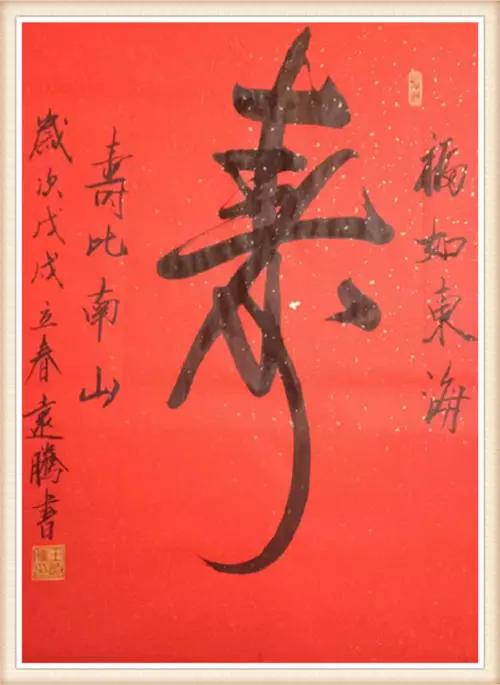 福如東海
寿
壽比南山
歲次戊戌立春遠騰書